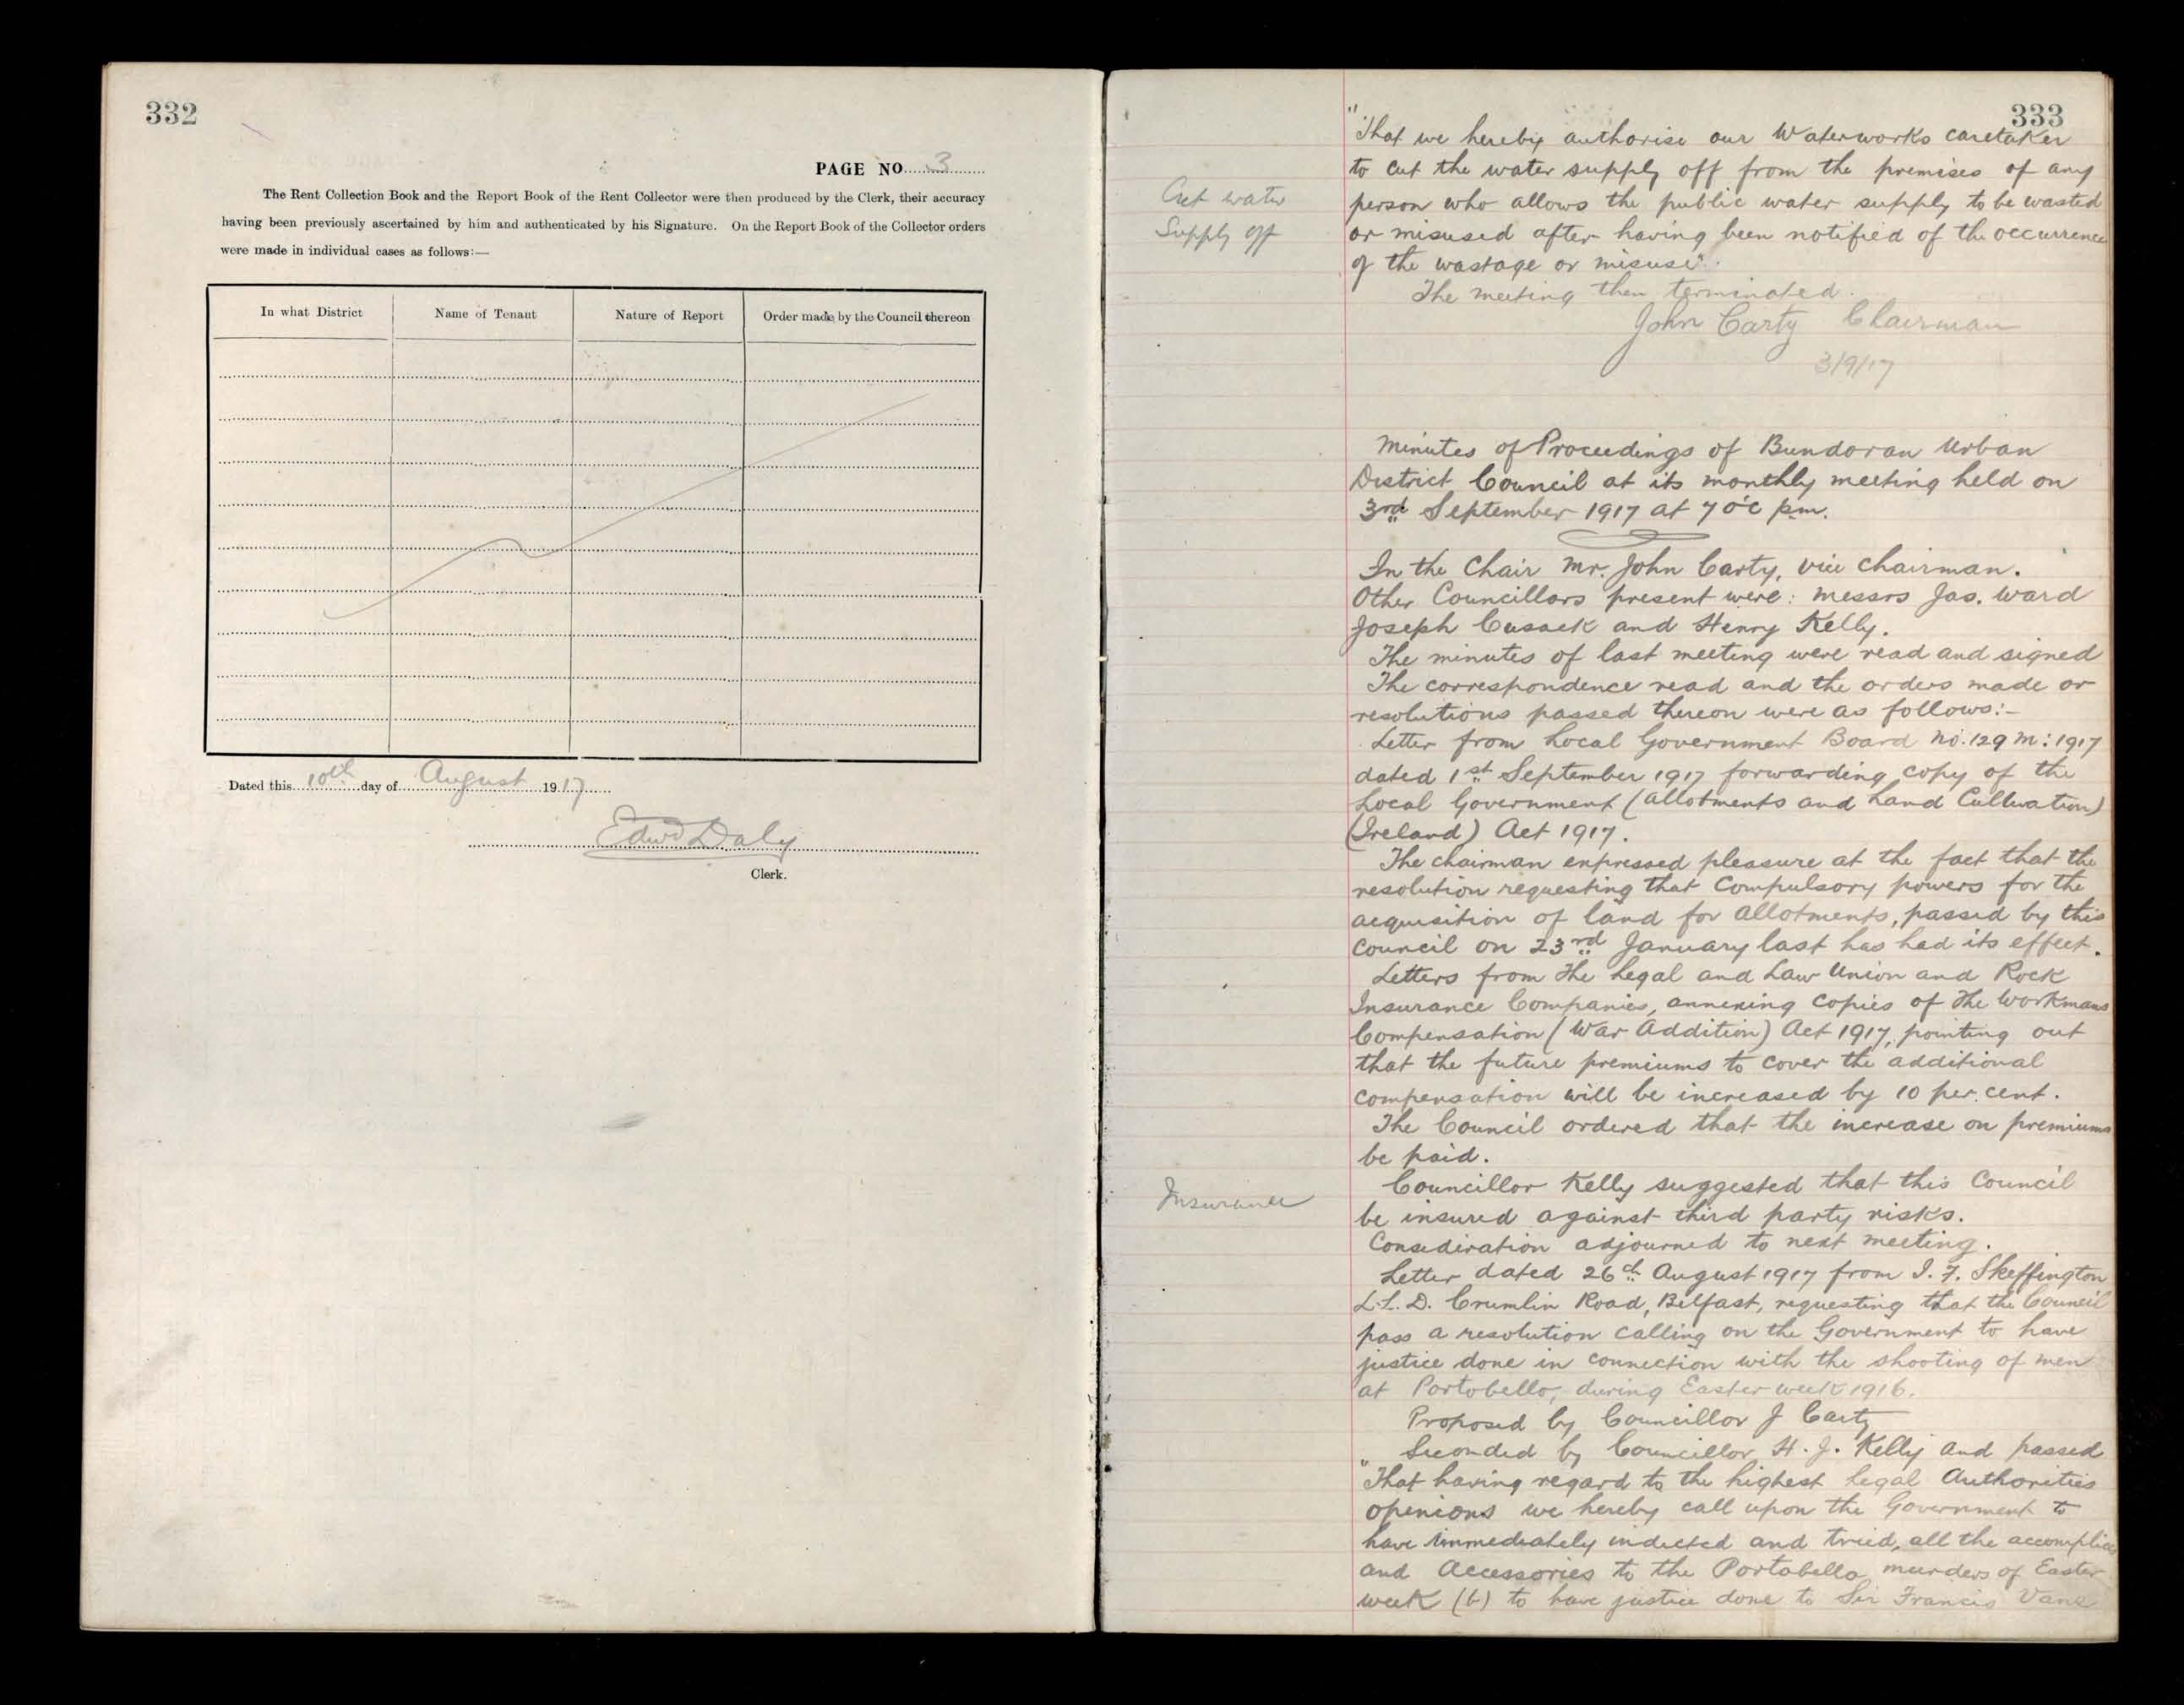 332
PAGE NO. 3
The Rent Collection Book and the Report Book of the Rent Collector were then produced by the Clerk, their accuracy
having been previously ascertained by him and authenticated by his Signature. On the Report Book of the Collector orders
were made in individual cases as follows:—
In what District Name of Tenant Nature of Report Order made by the Council thereon
Dated this 10th day of August 1917
Edwd Daly
Clerk.
333
"That we hereby authorise our Waterworks caretaker
to cut the water supply off from the premises of any
Cut water
person who allows the public water supply to be wasted
Supply off
or misused after having been notified of the occurrence
of the wastage or misuse".
The meeting then terminated.
John Carty Chairman
3/9/17
Minutes of Proceedings of Bundoran Urban
District Council at its monthly meeting held on
3rd September 1917 at 7 o'c p.m.
In the Chair Mr. John Carty, vice Chairman.
Other Councillors present were: Messrs Jas. Ward
Joseph Cusack and Henry Kelly.
The minutes of last meeting were read and signed
The correspondence read and the orders made or
resolutions passed thereon were as follows:-
Letter from Local Government Board No. 129 M: 1917
dated 1st September 1917 forwarding copy of the
Local Government (Allotments and Land Cultivation)
(Ireland) Act 1917.
The chairman expressed pleasure at the fact that the
resolution requesting that Compulsory powers for the
acquisition of land for allotments, passed by this
Council on 23rd January last has had its effect.
Letters from the Legal and Law Union and Rock
Insurance Companies, annexing copies of the Workmans
Compensation (War Addition) Act 1917, pointing out
that the future premiums to cover the additional
compensation will be increased by 10 per. cent.
The Council ordered that the increase on premiums
be paid.
Insurance
Councillor Kelly suggested that this Council
be insured against third party risks.
Consideration adjourned to next meeting.
Letter dated 26th August 1917 from J. F. Skeffington
L.L.D. Crumlin Road, Belfast, requesting that the Council
pass a resolution calling on the Government to have
justice done in connection with the shooting of men
at Portobello, during Easter week 1916.
Proposed by Councillor J Carty
Seconded by Councillor H. J. Kelly and passed
"That having regard to the highest legal Authorities
openions we hereby call upon the Government to
have immediately indicted and tried, all the accomplices
and Accessories to the Portobello murders of Easter
week (b) to have justice done to Sir Francis Vane